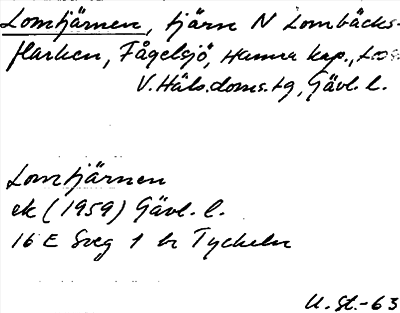 Lomtjärnen, tjärn N Lombäcks-
flarken, Fågelsjö, Hamra kap., Loos
V.Häls.doms.tg, Gävl. l.
Lomtjärnen
ek (1959) Gävl. l.
16 E Sveg 1 br Tyckeln
U. St.-63